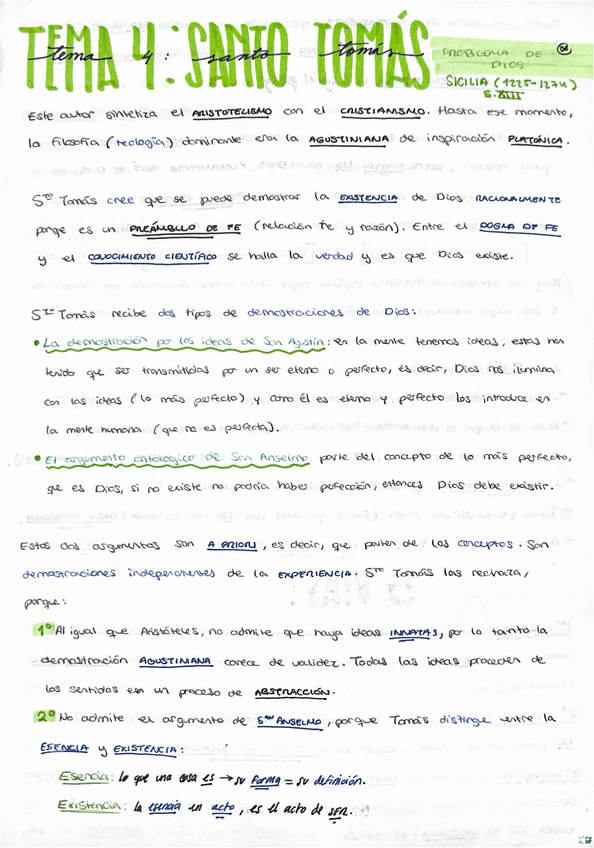 TEMA 4: SANTO TOMÁS
tema 4: santo tomás
PROBLEMA DE
DIOS
SICILIA (1225-1274)
S.XIII
Este autor sintetiza el ARISTOTELISMO con el CRISTIANISMO. Hasta ese momento,
la filosofía (teología) dominante era la AGUSTINIANA de inspiración PLATÓNICA.
Sto Tomás cree que se puede demostrar la EXISTENCIA de Dios RACIONALMENTE
porqe es un PREÁMBULO DE FE (relación fe y razón). Entre el DOGMA DE FE
y el CONOCIMIENTO CIENTÍFICO se halla la verdad y es que Dios existe.
Sto Tomás recibe dos tipos de demostraciones de Dios:
• La demostración por las ideas de San Agustín: en la mente tenemos ideas, estas han
tenido que ser transmitidas por un ser eterno o perfecto, es decir, Dios nos ilumina
con las ideas (lo más perfecto) y como él es eterno y perfecto las introduce en
la mente humana (que no es perfecta).
• El argumento ontológico de San Anselmo: parte del concepto de lo más perfecto,
que es Dios, si no existe no podría haber perfección, entonces Dios debe existir.
Estos dos argumentos son A PRIORI, es decir, que parten de los conceptos. Son
demostraciones independientes de la EXPERIENCIA. Sto Tomás las rechaza,
porque:
1º Al igual que Aristóteles, no admite que haya ideas INNATAS, por lo tanto la
demostración AGUSTINIANA carece de validez. Todas las ideas proceden de
los sentidos en un proceso de ABSTRACCIÓN.
2º No admite el argumento de San ANSELMO, porque Tomás distingue entre la
ESENCIA y EXISTENCIA:
Esencia: lo que una cosa es → su forma = su definición.
Existencia: la esencia en acto, es el acto de SER.